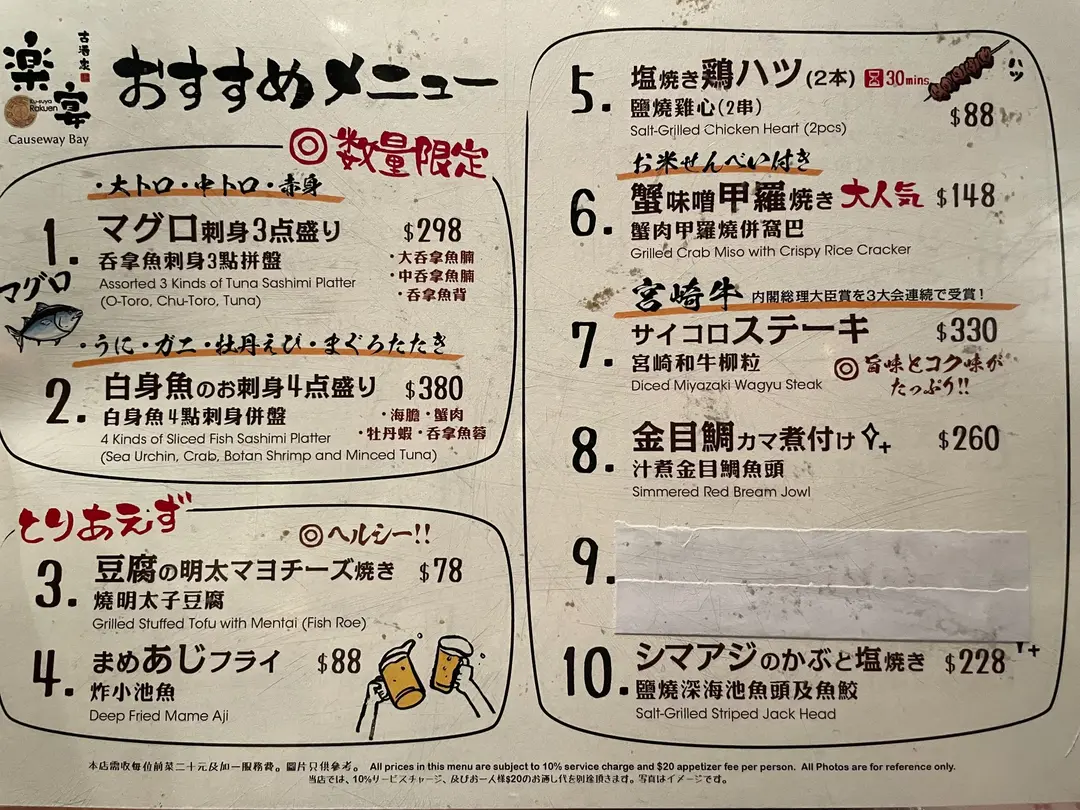 楽宴
古酒家
Ku-suya
Rakuen
Causeway Bay
おすすめメニュー
◎数量限定
・大トロ・中トロ・赤身
1. マグロ刺身3点盛り $298
吞拿魚刺身3點拼盤
Assorted 3 Kinds of Tuna Sashimi Platter
(O-Toro, Chu-Toro, Tuna)
・大吞拿魚腩
・中吞拿魚腩
・吞拿魚背
マグロ
・うに・ガニ・牡丹えび・まぐろたたき
2. 白身魚のお刺身4点盛り $380
白身魚4點刺身併盤
4 Kinds of Sliced Fish Sashimi Platter
(Sea Urchin, Crab, Botan Shrimp and Minced Tuna)
・海膽・蟹肉
・牡丹蝦・吞拿魚蓉
とりあえず
◎ヘルシー!!
3. 豆腐の明太マヨチーズ焼き $78
燒明太子豆腐
Grilled Stuffed Tofu with Mentai (Fish Roe)
4. まめあじフライ $88
炸小池魚
Deep Fried Mame Aji
5. 塩焼き鶏ハツ(2本) 30mins
ハツ
鹽燒雞心(2串) $88
Salt-Grilled Chicken Heart (2pcs)
お米せんべい付き
6. 蟹味噌甲羅焼き 大人気 $148
蟹肉甲羅燒併窩巴
Grilled Crab Miso with Crispy Rice Cracker
宮崎牛 内閣総理大臣賞を3大会連続で受賞!
7. サイコロステーキ $330
宮崎和牛柳粒
Diced Miyazaki Wagyu Steak
◎旨味とコク味が
たっぷり!!
8. 金目鯛カマ煮付け $260
汁煮金目鯛魚頭
Simmered Red Bream Jowl
9.
10. シマアジのかぶと塩焼き $228
鹽燒深海池魚頭及魚鮫
Salt-Grilled Striped Jack Head
本店需收每位前菜二十元及加一服務費。圖片只供參考。 All prices in this menu are subject to 10% service charge and $20 appetizer fee per person. All Photos are for reference only.
当店では、10%サービスチャージ、及びお一人様$20のお通し代を別途頂きます。写真はイメージです。